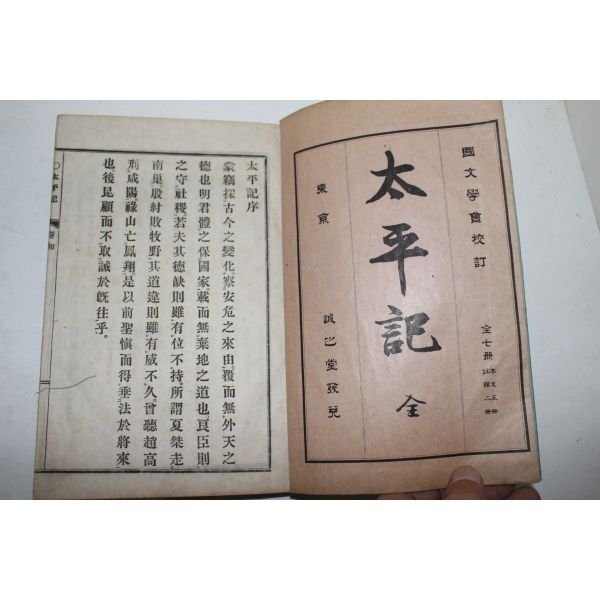 國文學會校訂
全七册 本文五册 註釋二册
太平記 全
東京 誠之堂發兌
太平記序
蒙竊採古今之變化察安危之來由覆而無外天之
德也明君體之保國家載而無棄地之道也良臣則
之守社稷若夫其德缺則雖有位不持所謂夏桀走
南巢殷紂敗牧野其道違則雖有威不久曾聽趙高
刑咸陽祿山亡鳳翔是以前聖愼而得垂法於將來
也後昆顧而不取誡於既往乎。
○太平記